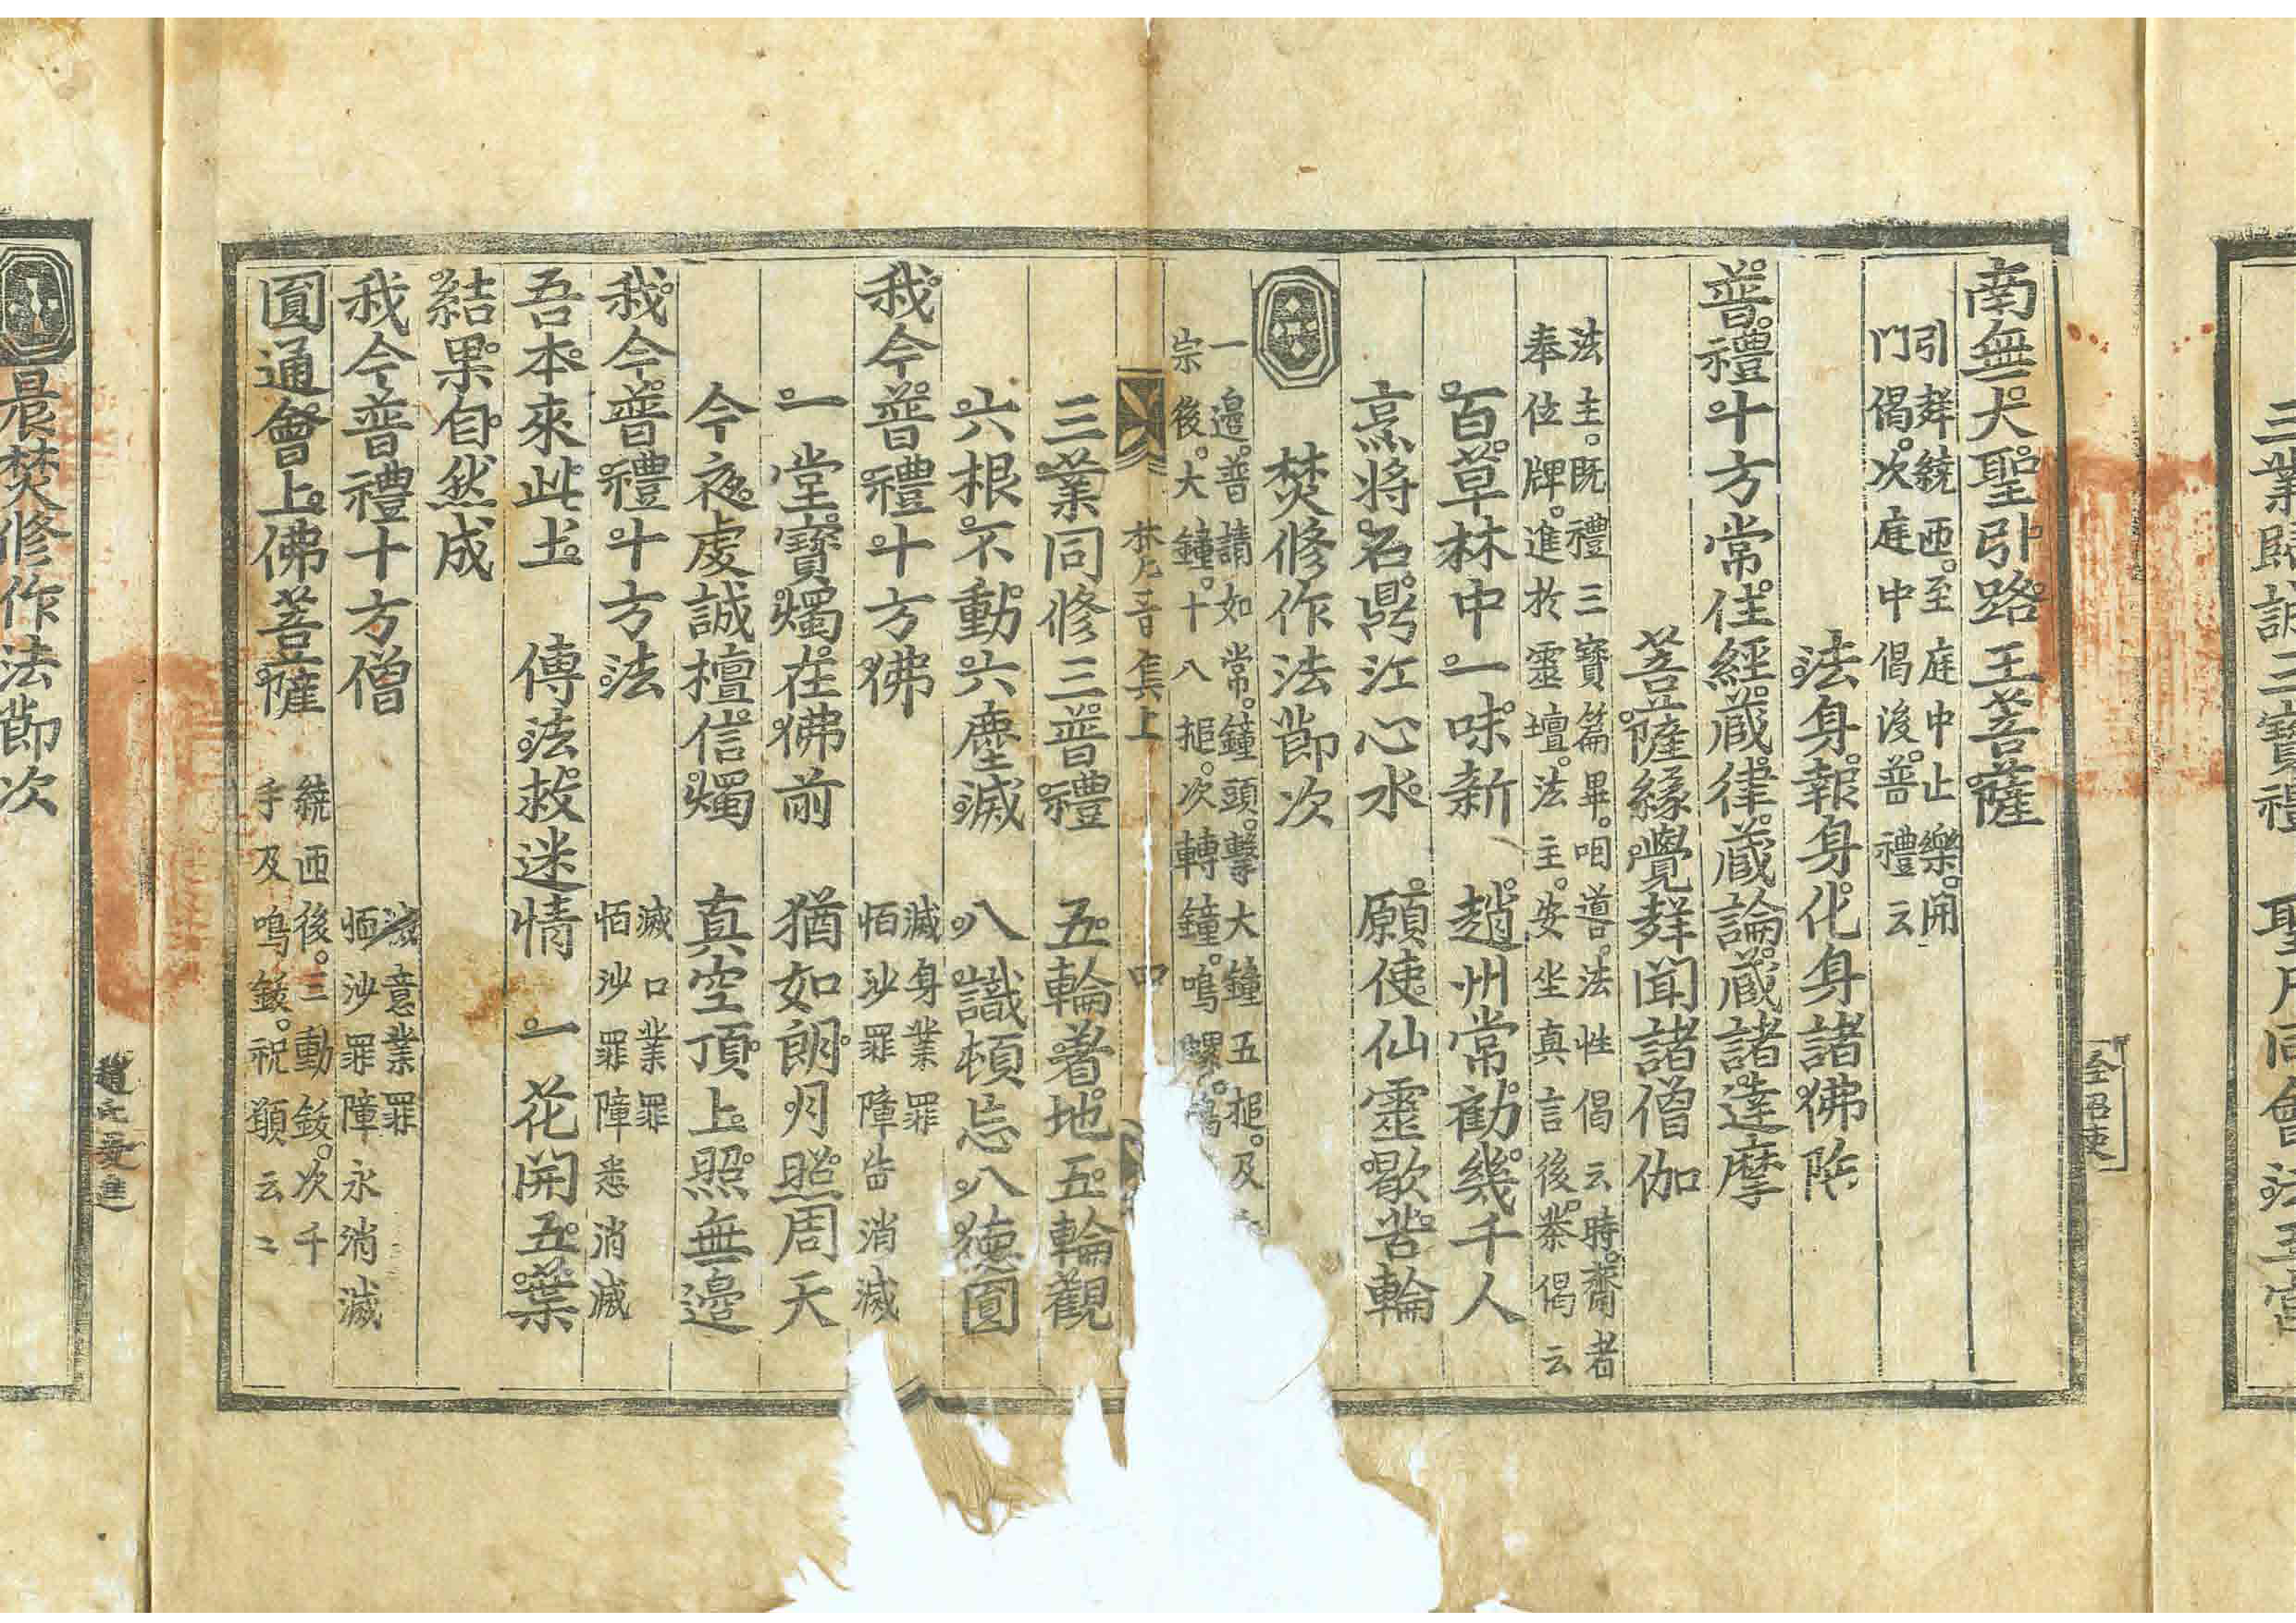 三業歸誠三寶禮 聖凡同會法王宮
南無大聖引路王菩薩
引聲繞匝至庭中止樂開
門偈次庭中偈後普禮云
法身報身化身諸佛陁
普禮十方常住經藏律藏論藏諸達摩
菩薩緣覺聲聞諸僧伽
法主既禮三寶篇畢咱道法性偈云時齋者
奉位牌進於靈壇法主安坐真言後茶偈云
百草林中一味新 趙州常勸幾千人
烹將石鼎江心水 願使仙靈歇苦輪
焚修作法節次
一邊普請如常鐘頭擊大鐘五搥及
宗後大鐘十八搥次轉鐘鳴螺鳴
梵音集上
三業同修三普禮 五輪着地五輪觀
六根不動六塵滅 八識頓忘八德圓
我今普禮十方佛
滅身業罪
恒沙罪障皆消滅
一堂寶燭在佛前 猶如朗月照周天
今夜虔誠檀信燭 真空頂上照無邊
我今普禮十方法
滅口業罪
恒沙罪障悉消滅
吾本來此土 傳法救迷情 一花開五葉
結果自然成
我今普禮十方僧
滅意業罪
恒沙罪障永消滅
圓通會上佛菩薩
繞匝後三動鈸次千
手及鳴鈸祝願云々
晨焚修作法節次